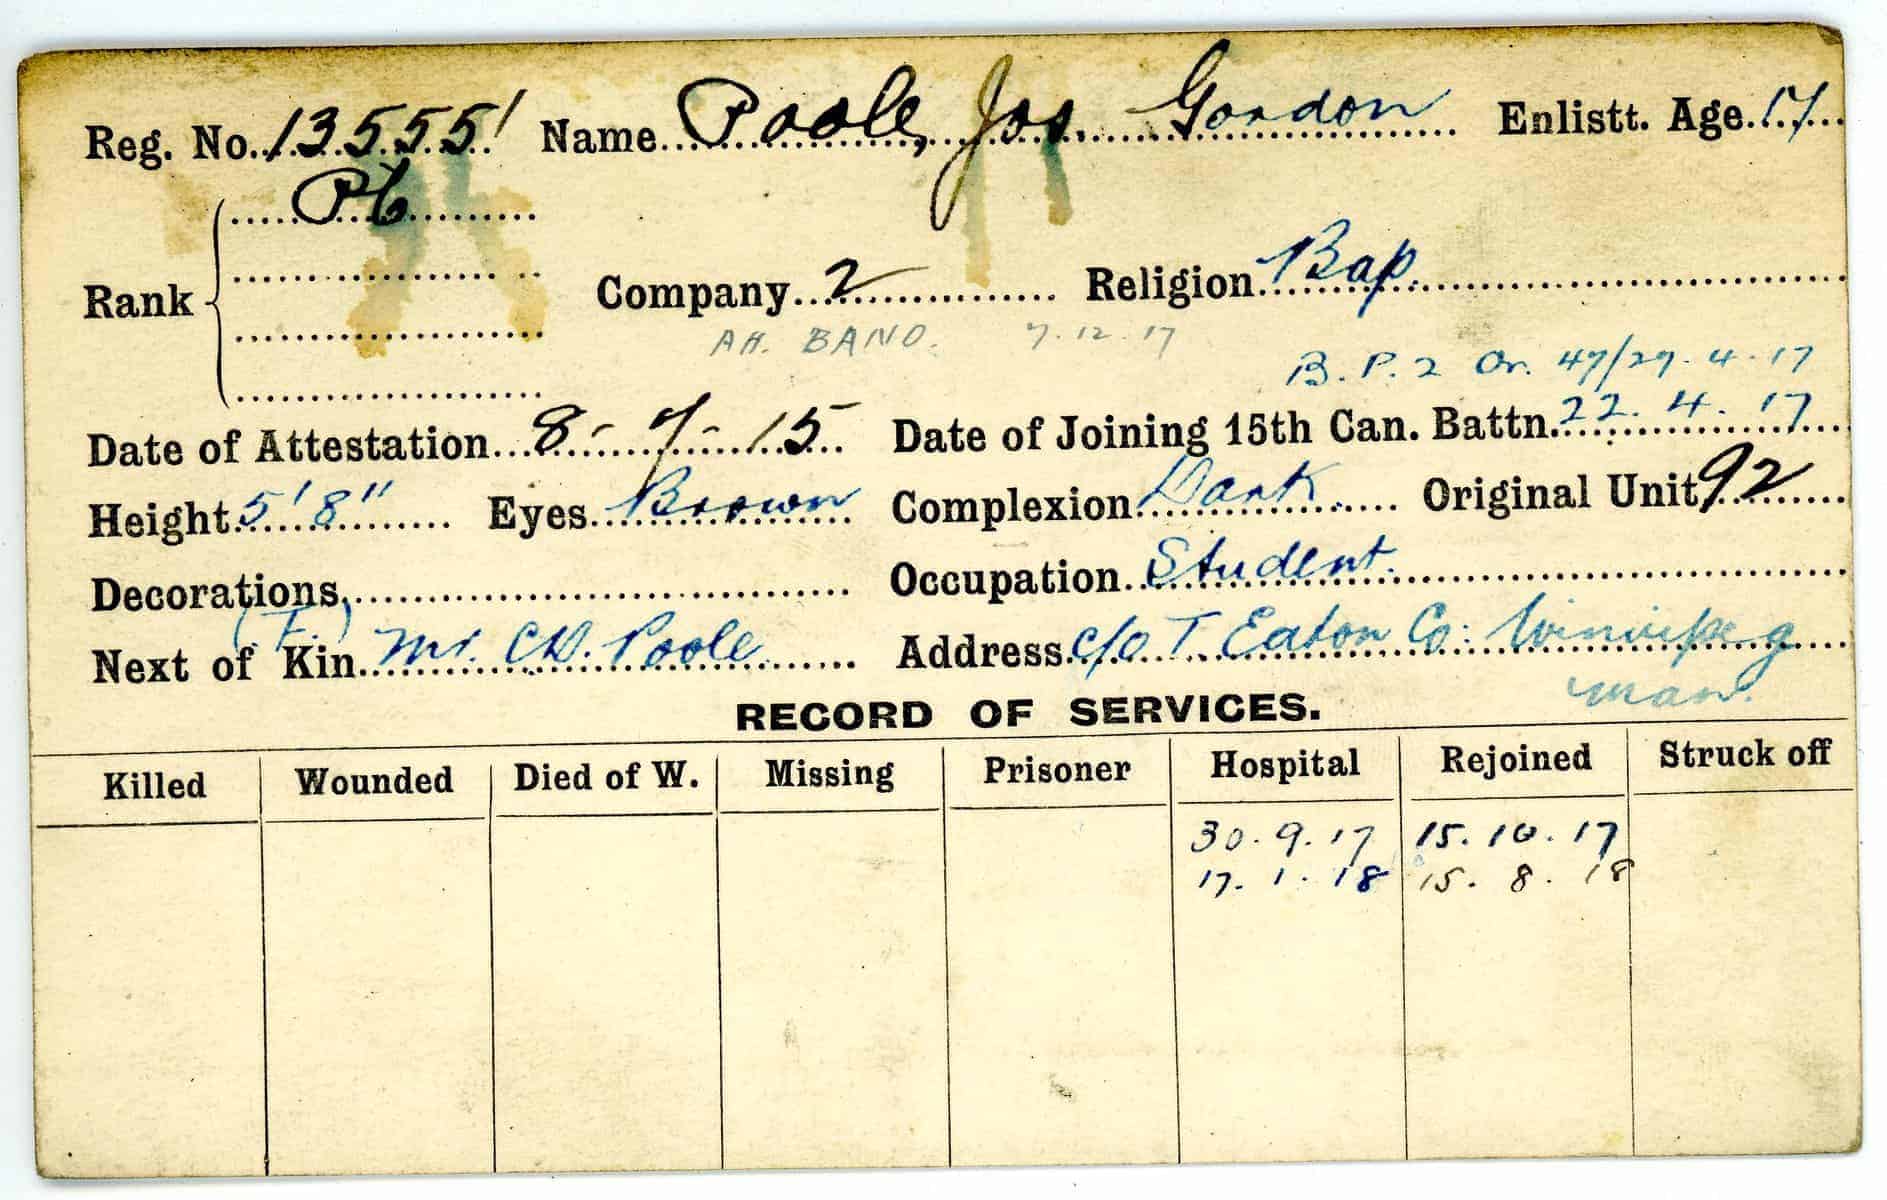 Reg. No. 135551 Name Poole, Jos. Gordon Enlistt. Age. 17
Pte
Rank Company 2 Religion Bap
BAND. 7.12.17
B.P.2 Or. 47/27.4.17
Date of Attestation 8-7-15 Date of Joining 15th Can. Battn. 22.4.17
Height 5' 8" Eyes Brown Complexion Dark Original Unit 92
Decorations Occupation Student.
(F.)
Next of Kin Mr. Poole Address c/o T. Eaton Co: Winnipeg
Man.
RECORD OF SERVICES.
Killed Wounded Died of W. Missing Prisoner Hospital Rejoined Struck off
30.9.17 15.10.17
17.1.18 15.8.18